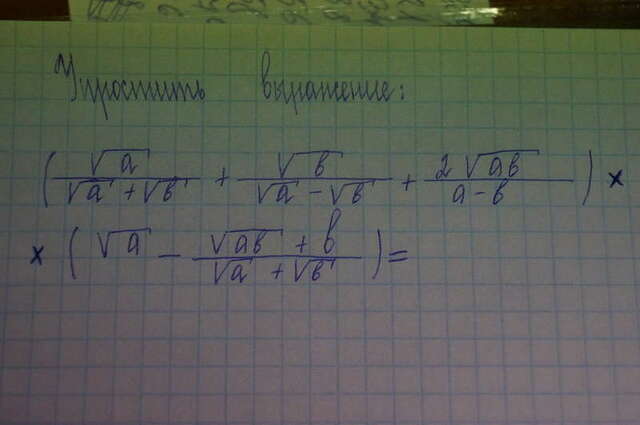 Упростить выражение:
( √a / (√a + √b) + √b / (√a − √b) + 2√ab / (a − b) ) ×
× ( √a − (√ab + b) / (√a + √b) ) =